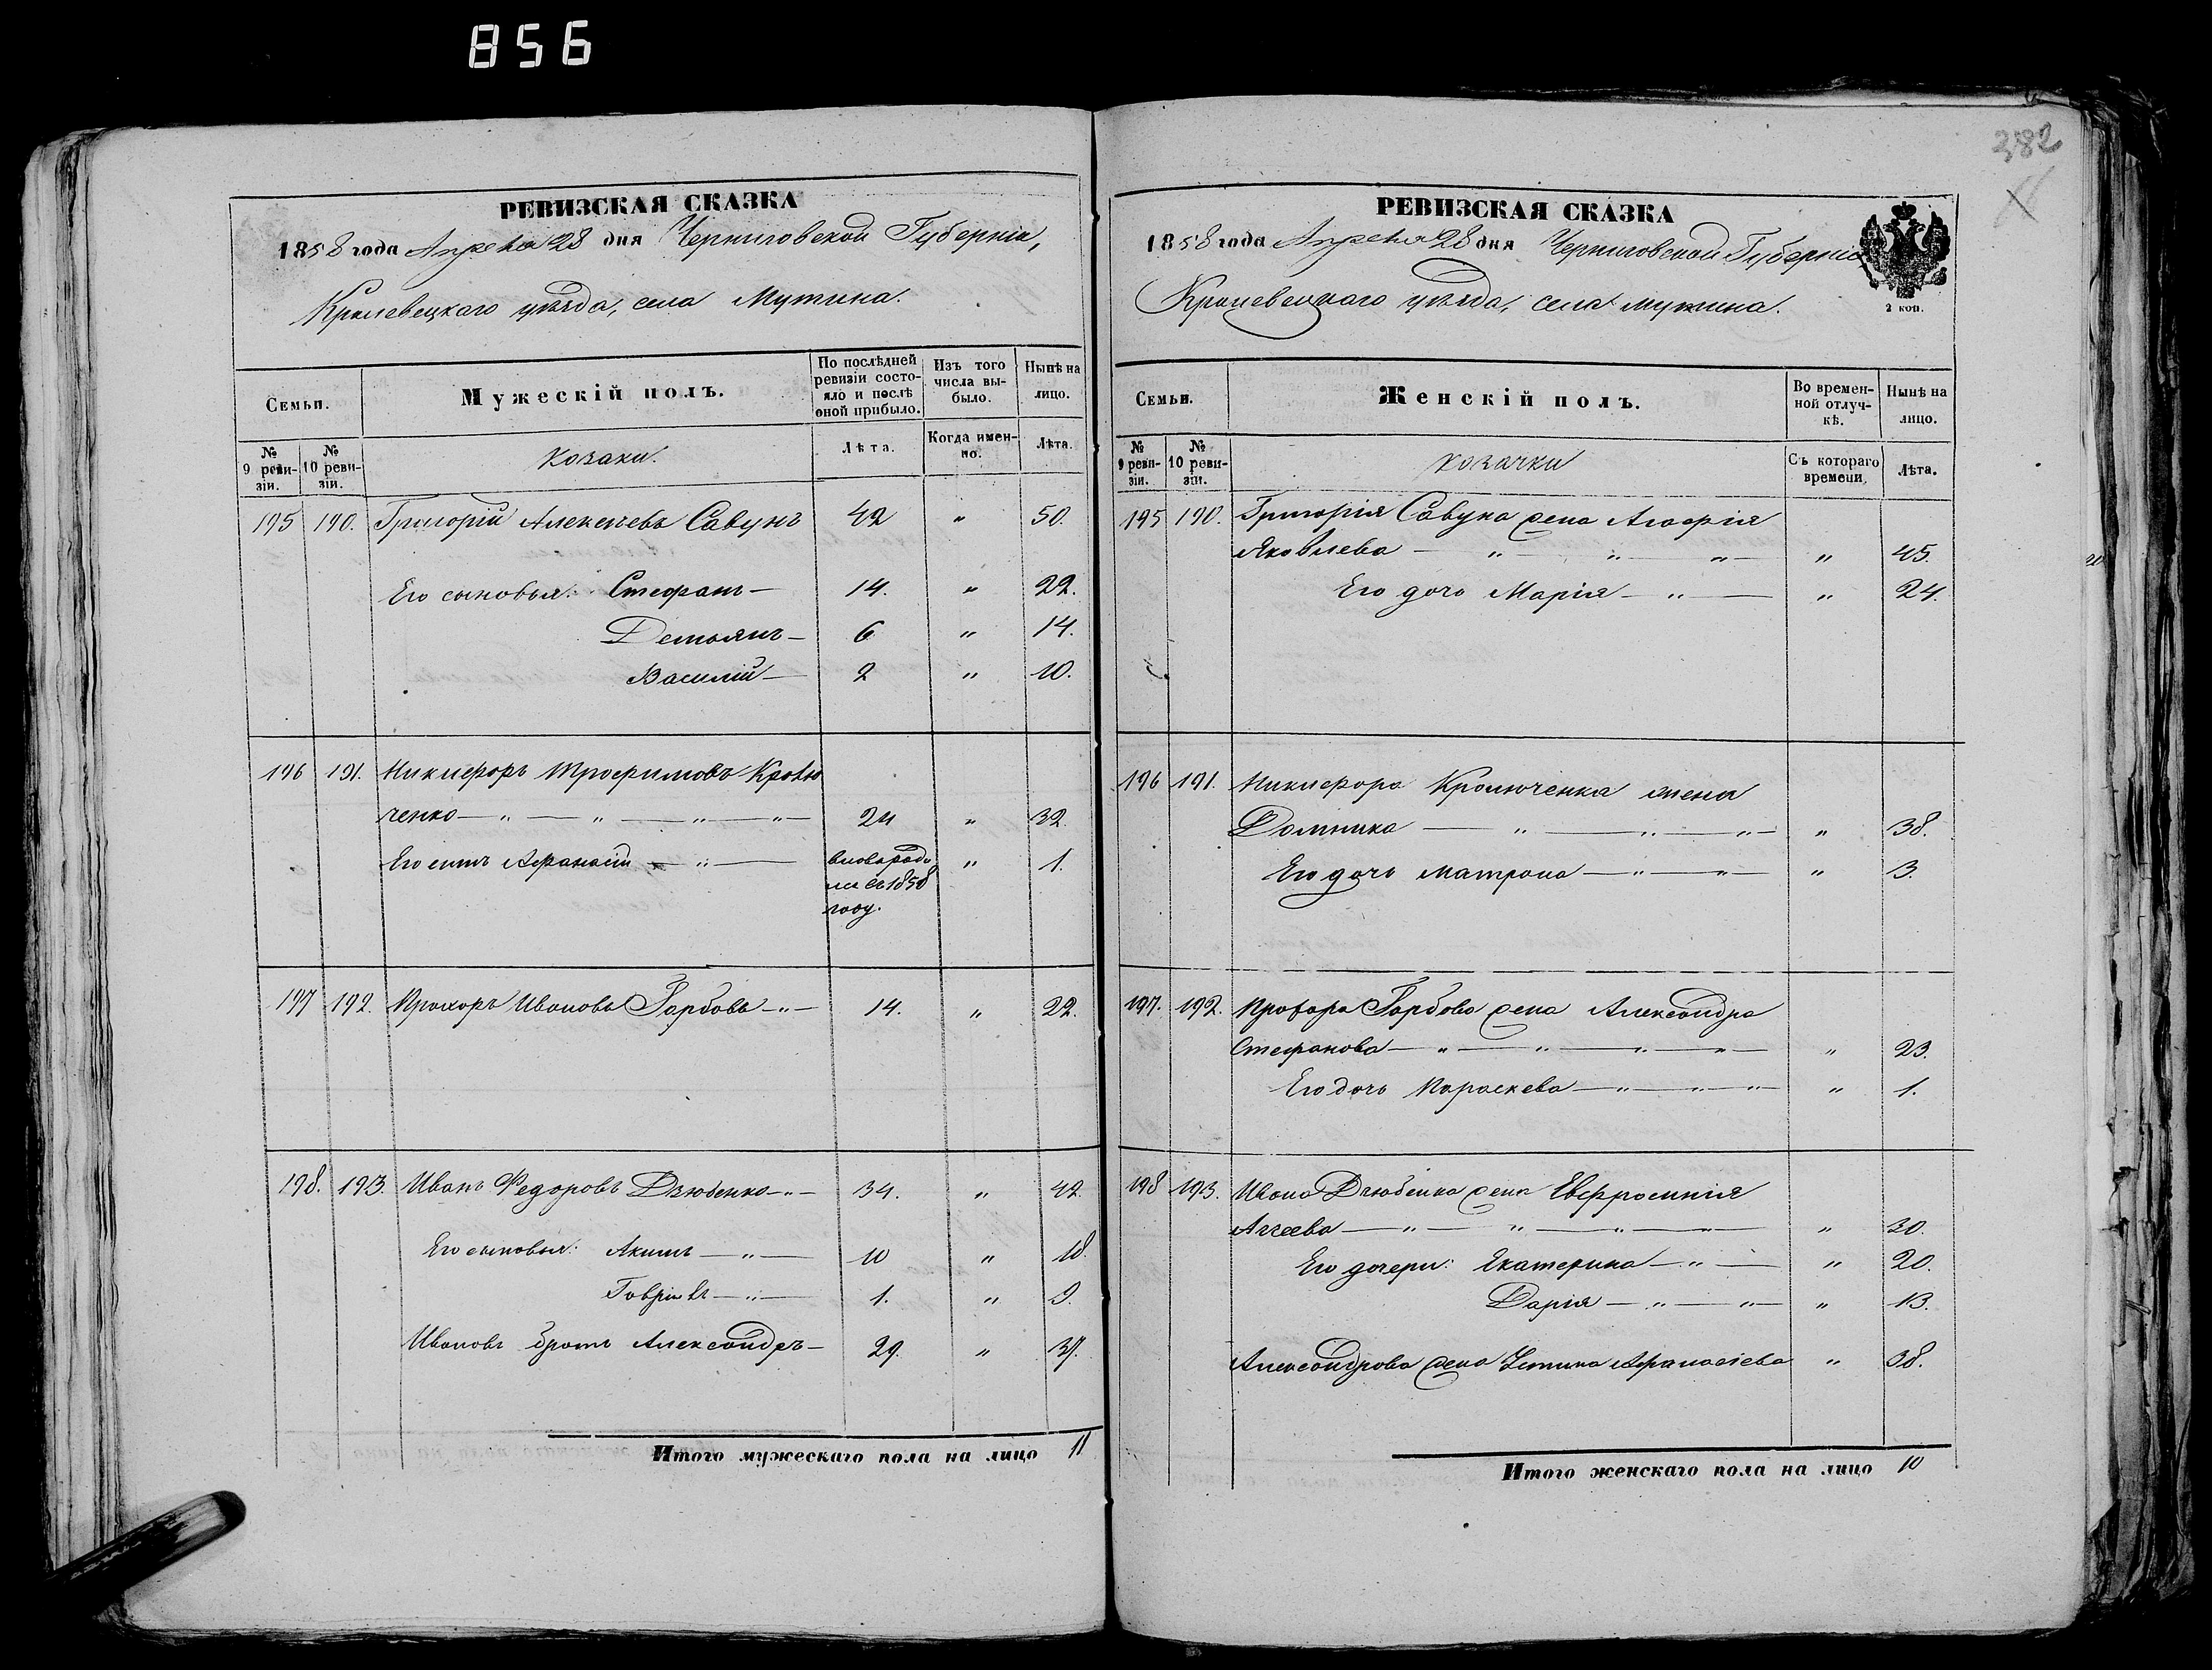 856
382
РЕВИЗСКАЯ СКАЗКА
1858 года Апреля 28 дня Черниговской Губерніи,
Кролевецкаго уѣзда, села Мутина.
Семьи.
Мужескій полъ.
По послѣдней ревизіи состояло и послѣ оной прибыло.
Изъ того числа выбыло.
Нынѣ на лицо.
№ 9 ревизіи.
№ 10 ревизіи.
Козаки.
Лѣта.
Когда именно.
Лѣта.
195 190. Григорій Алексѣевъ Савунъ 42 " 50.
Его сыновья: Стефанъ — 14. " 22.
Демьянъ — 6 " 14.
Василій — 2 " 10.
196 191. Никифоръ Трофимовъ Кролю
ченко — " — " — " — " — 24 " 32.
Его сынъ Афанасій — " — вновь роди " 1.
лся 1858
году.
197 192. Прохоръ Ивановъ Горбовъ — " — 14. " 22.
198. 193. Иванъ Федоровъ Дзюбенко — " — 34. " 42.
Его сыновья: Акимъ — " — 10 " 18.
Гаврiилъ — " — 1. " 9.
Ивановъ братъ Александръ — 29. " 37.
Итого мужескаго пола на лицо 11
РЕВИЗСКАЯ СКАЗКА
1858 года Апреля 28 дня Черниговской Губерніи
Кролевецкаго уѣзда, села Мутина.
2 коп.
Семьи.
Женскій полъ.
Во временной отлучкѣ.
Нынѣ на лицо.
№ 9 ревизіи.
№ 10 ревизіи.
Козачки
Съ котораго времени.
Лѣта.
195 190. Григорія Савуна жена Агафія
Яковлева — " — " — " — " 45.
Его дочь Марія — " — " 24.
196 191. Никифора Кролюченка жена
Домника — " — " — " — " 38.
Его дочь Матрона — " — " — " 3.
197. 192. Прохора Горбова жена Александра
Стефанова — " — " — " — " — " 23.
Его дочь Параскева — " — " — " " 1.
198 193. Ивана Дзюбенка жена Евфросинія
Аггеева — " — " — " — " — " 30.
Его дочери: Екатерина — " — " 20.
Дарія — " — " — " 13.
Александрова жена Устина Афанасіева " 38.
Итого женскаго пола на лицо 10